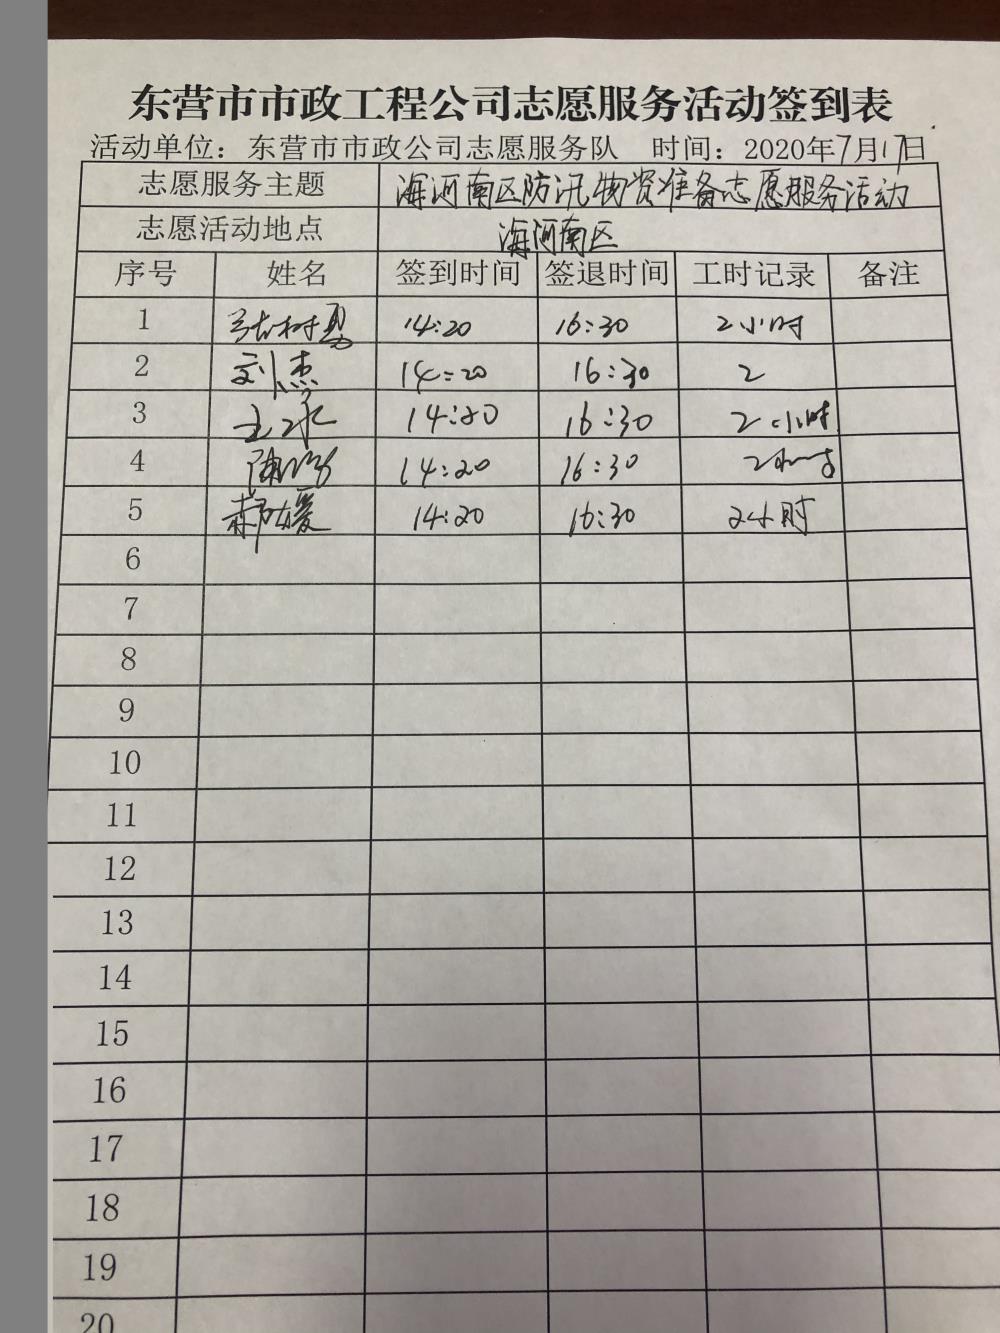 东营市市政工程公司志愿服务活动签到表
活动单位：东营市市政公司志愿服务队 时间：2020年7月17日
志愿服务主题 海河南区防汛物资准备志愿服务活动
志愿活动地点 海河南区
序号 姓名 签到时间 签退时间 工时记录 备注
1 14:20 16:30 2小时
2 刘杰 14:20 16:30 2
3 14:20 16:30 2小时
4 14:20 16:30 2小时
5 郝媛 14:20 16:30 2小时
6
7
8
9
10
11
12
13
14
15
16
17
18
19
20